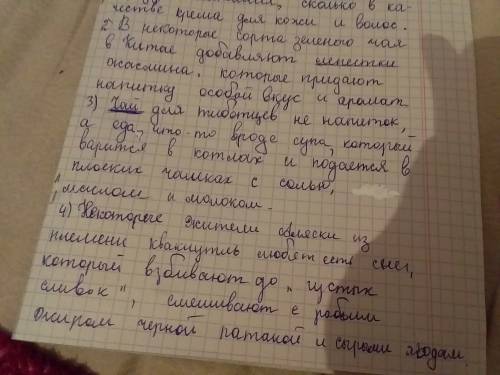 сколько в ка-
честве крема для кожи и волос.
2. В некоторые сорта зеленого чая
в Китае добавляют лепестки
жасмина, которые придают
напитку особый вкус и аромат
3) Чай для тибетцев не напиток,
а еда, что-то вроде супа, который
варится в котлах и подается в
плоских чашках с солью,
маслом и молоком.
4) Некоторые жители Аляски из
племени квакиутль любят есть снег,
который взбивают до "густых
сливок", смешивают с рыбьим
жиром черной патокой и сырыми ягодами.